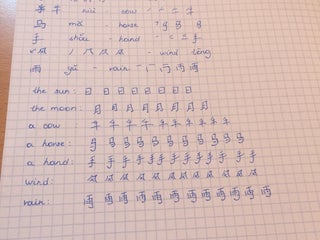 牛 niú - cow ノ 𠂉 二 牛
马 mǎ - horse 马 马
手 shǒu - hand 二 三 手
风 ノ 几 风 风 - wind fēng
雨 yǔ - rain 一 冂 雨 雨
the sun: 日 日 日 日 日 日 日 日
the moon: 月 月 月 月 月 月 月 月
a cow : 牛 牛 牛 牛 牛 牛 牛 牛 牛 牛
a horse: 马 马 马 马 马 马 马 马 马 马 马
a hand: 手 手 手 手 手 手 手 手 手 手 手
wind: 风 风 风 风 风 风 风 风 风 风
rain: 雨 雨 雨 雨 雨 雨 雨 雨 雨 雨 雨